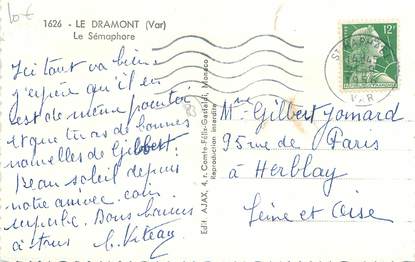 10 €
1626 - LE DRAMONT (Var)
Le Sémaphore
Ici tout va bien
j'espère qu'il en
est de même pour toi
et que tu as de bonnes
nouvelles de Gilbert.
Beau soleil depuis
notre arrivée. coin
superbe. Bons baisers
à tous
Edit. AJAX, 4, r. Comte-Félix-Gastaldi, Monaco
Reproduction interdite
12F
1956
VAR
Mme Gilbert Jomard
95 rue de Paris
à Herblay
Seine et Oise